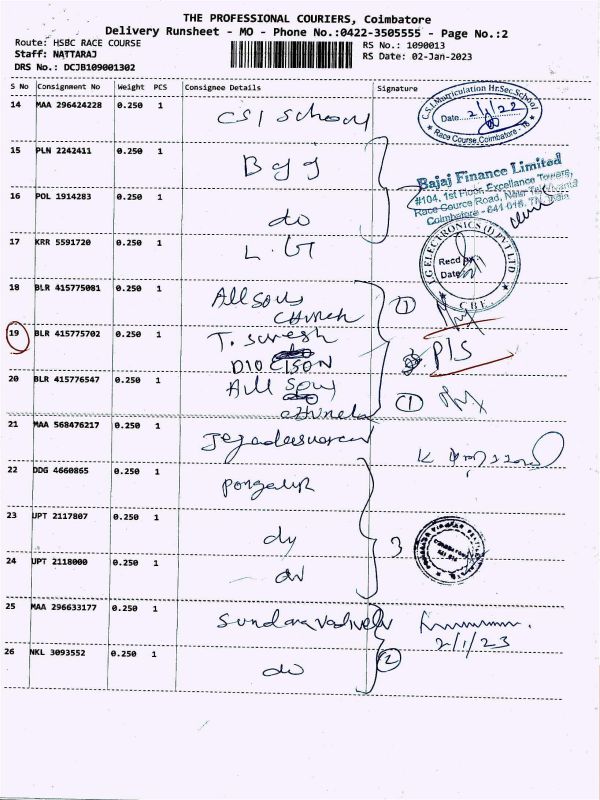 THE PROFESSIONAL COURIERS, Coimbatore
Delivery Runsheet - MO - Phone No.:0422-3505555 - Page No.:2
Route: HSBC RACE COURSE
RS No.: 1090013
Staff: NATTARAJ
RS Date: 02-Jan-2023
DRS No.: DCJB109001302
S No Consignment No Weight PCS Consignee Details Signature
14 MAA 296424228 0.250 1 CSI School
C.S.I. Matriculation Hr.Sec.School
Date 2/1/22
Race Course, Coimbatore - 18
15 PLN 2242411 0.250 1
Bajaj Finance Limited
#104, 1st Floor, Excellance Towers,
Race Cource Road, Near Telephone
Coimbatore - 641 018. TN. India
16 POL 1914283 0.250 1 do
17 KRR 5591720 0.250 1 L.G
LG ELECTRONICS (I) PVT LTD
Recd By
Date
CBE.
18 BLR 415775081 0.250 1 All Souls
Church
1
19 BLR 415775702 0.250 1 T. Suresh
DIOCISON
P/S
20 BLR 415776547 0.250 1 All
1
21 MAA 568476217 0.250 1 Jegadeeswaran
22 DDG 4660865 0.250 1 pongalur
23 UPT 2117807 0.250 1 dy
3
24 UPT 2118000 0.250 1 do
25 MAA 296633177 0.250 1 Sundaravadivelu
2/1/23
26 NKL 3093552 0.250 1 do
2